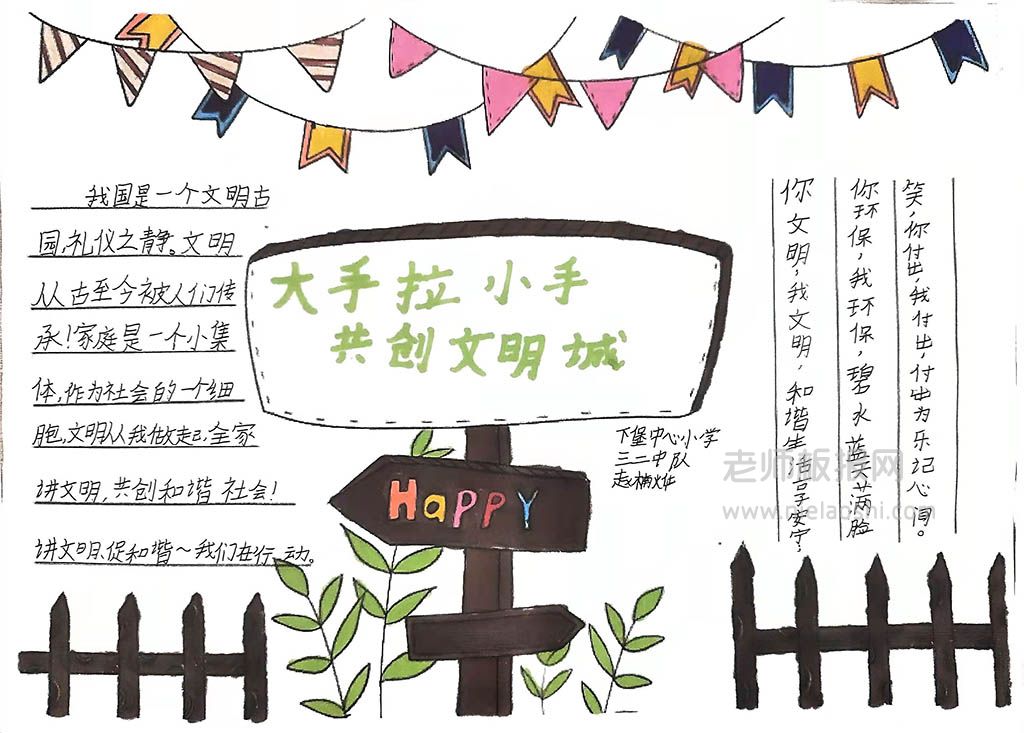 大手拉小手
共创文明城
我国是一个文明古
园,礼仪之静。文明
从古至今被人们传
承!家庭是一个小集
体,作为社会的一个细
胞,文明从我做起,全家
讲文明,共创和谐 社会!
讲文明、促和谐~我们在行动。
HaPPY
下堡中心小学
三二中队
你文明,我文明,和谐生活享安宁;
你环保,我环保,碧水蓝天满脸
笑,你付出,我付出,付出为乐记心间。
老师板报网